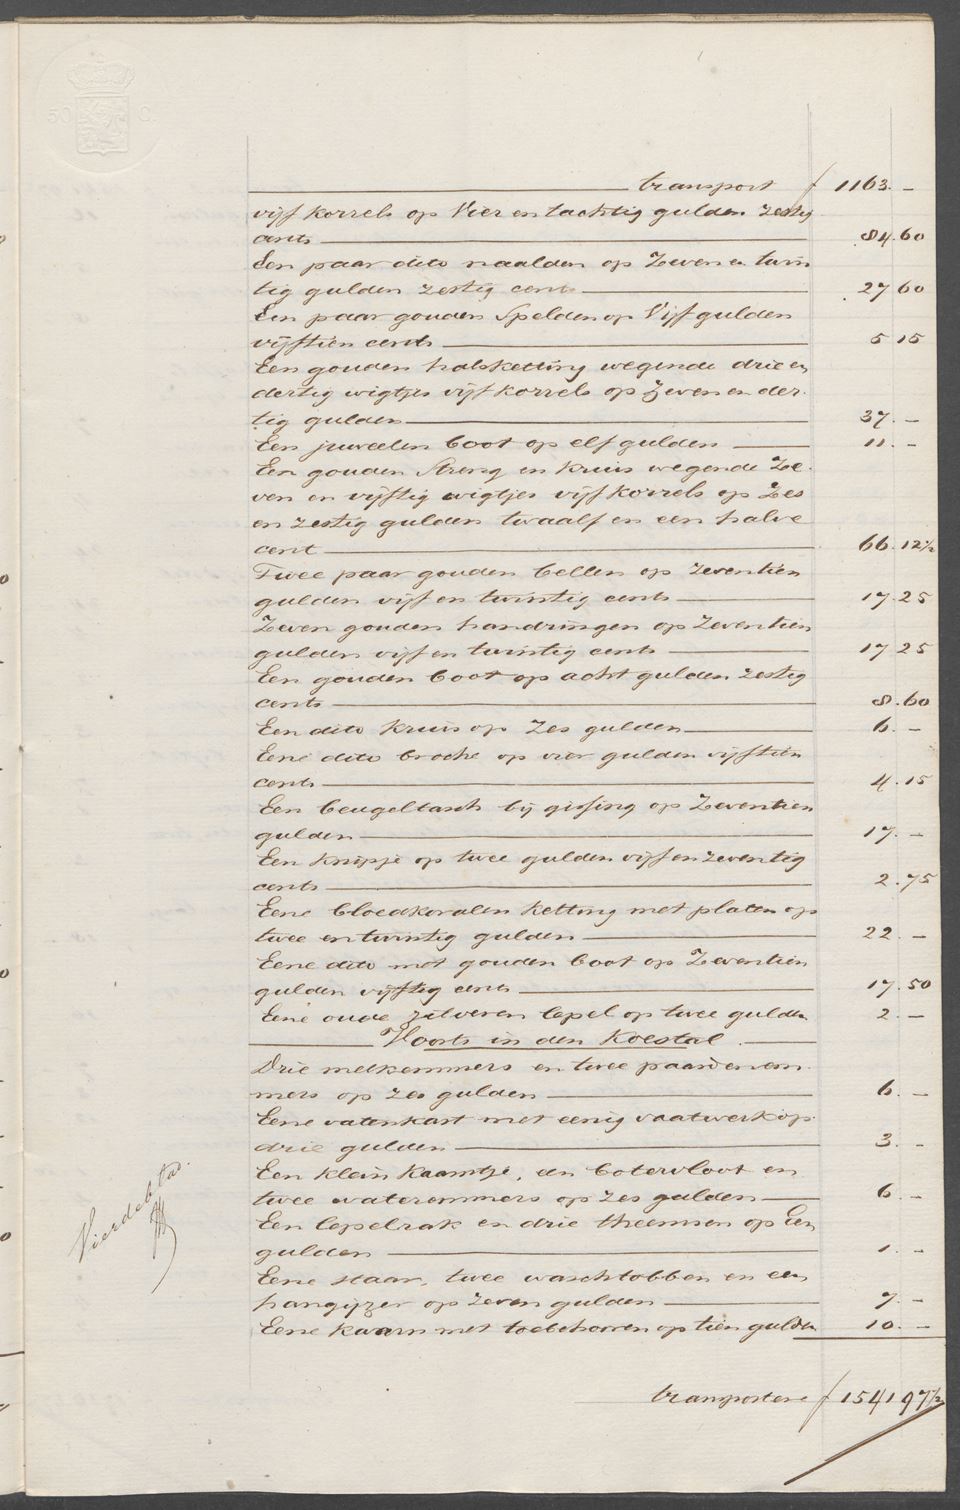 50 C.
transport f 1163. -
vijf korrels op Vier en tachtig gulden zestig
cents 84.60
Een paar dito naalden op Zeven en twin
tig gulden zestig cents 27 60
Een paar gouden Spelden op Vijf gulden
vijftien cents 5 15
Een gouden halsketting wegende drie en
dertig wigtjes vijf korrels op Zeven en der-
tig gulden 37. -
Een juweelen boot op elf gulden 11. -
Een gouden Streng en kruis wegende Ze-
ven en vijftig wigtjes vijf korrels op Zes
en zestig gulden twaalf en een halve
cent 66.12½
Twee paar gouden bellen op zeventien
gulden vijf en twintig cents 17.25
Zeven gouden handringen op Zeventien
gulden vijf en twintig cents 17 25
Een gouden boot op acht gulden zestig
cents 8.60
Een dito kruis op Zes gulden 6. -
Eene dito broche op vier gulden vijftien
cents 4.15
Een beugeltasch bij gissing op Zeventien
gulden 17. -
Een knipje op twee gulden vijf en zeventig
cents 2.75
Eene bloedkoralen ketting met platen op
twee en twintig gulden 22. -
Eene dito met gouden boot op Zeventien
gulden vijftig cents 17.50
Eene oude zilveren lepel op twee gulden 2. -
Voorts in den Koestal
Drie melkemmers en twee paardenem-
mers op zes gulden 6. -
Eene vatenkast met eenig vaatwerk op
drie gulden 3. -
Een klein kaarntje, een botervloot en
twee wateremmers op zes gulden 6 -
Een lepelrak en drie theemsen op Een
gulden 1. -
Eene staar, twee waschtobben en een
hangijzer op zeven gulden 7. -
Eene kaarn met toebehooren op tien gulden 10. -
transportere f 1541 97½
Vierde blad.